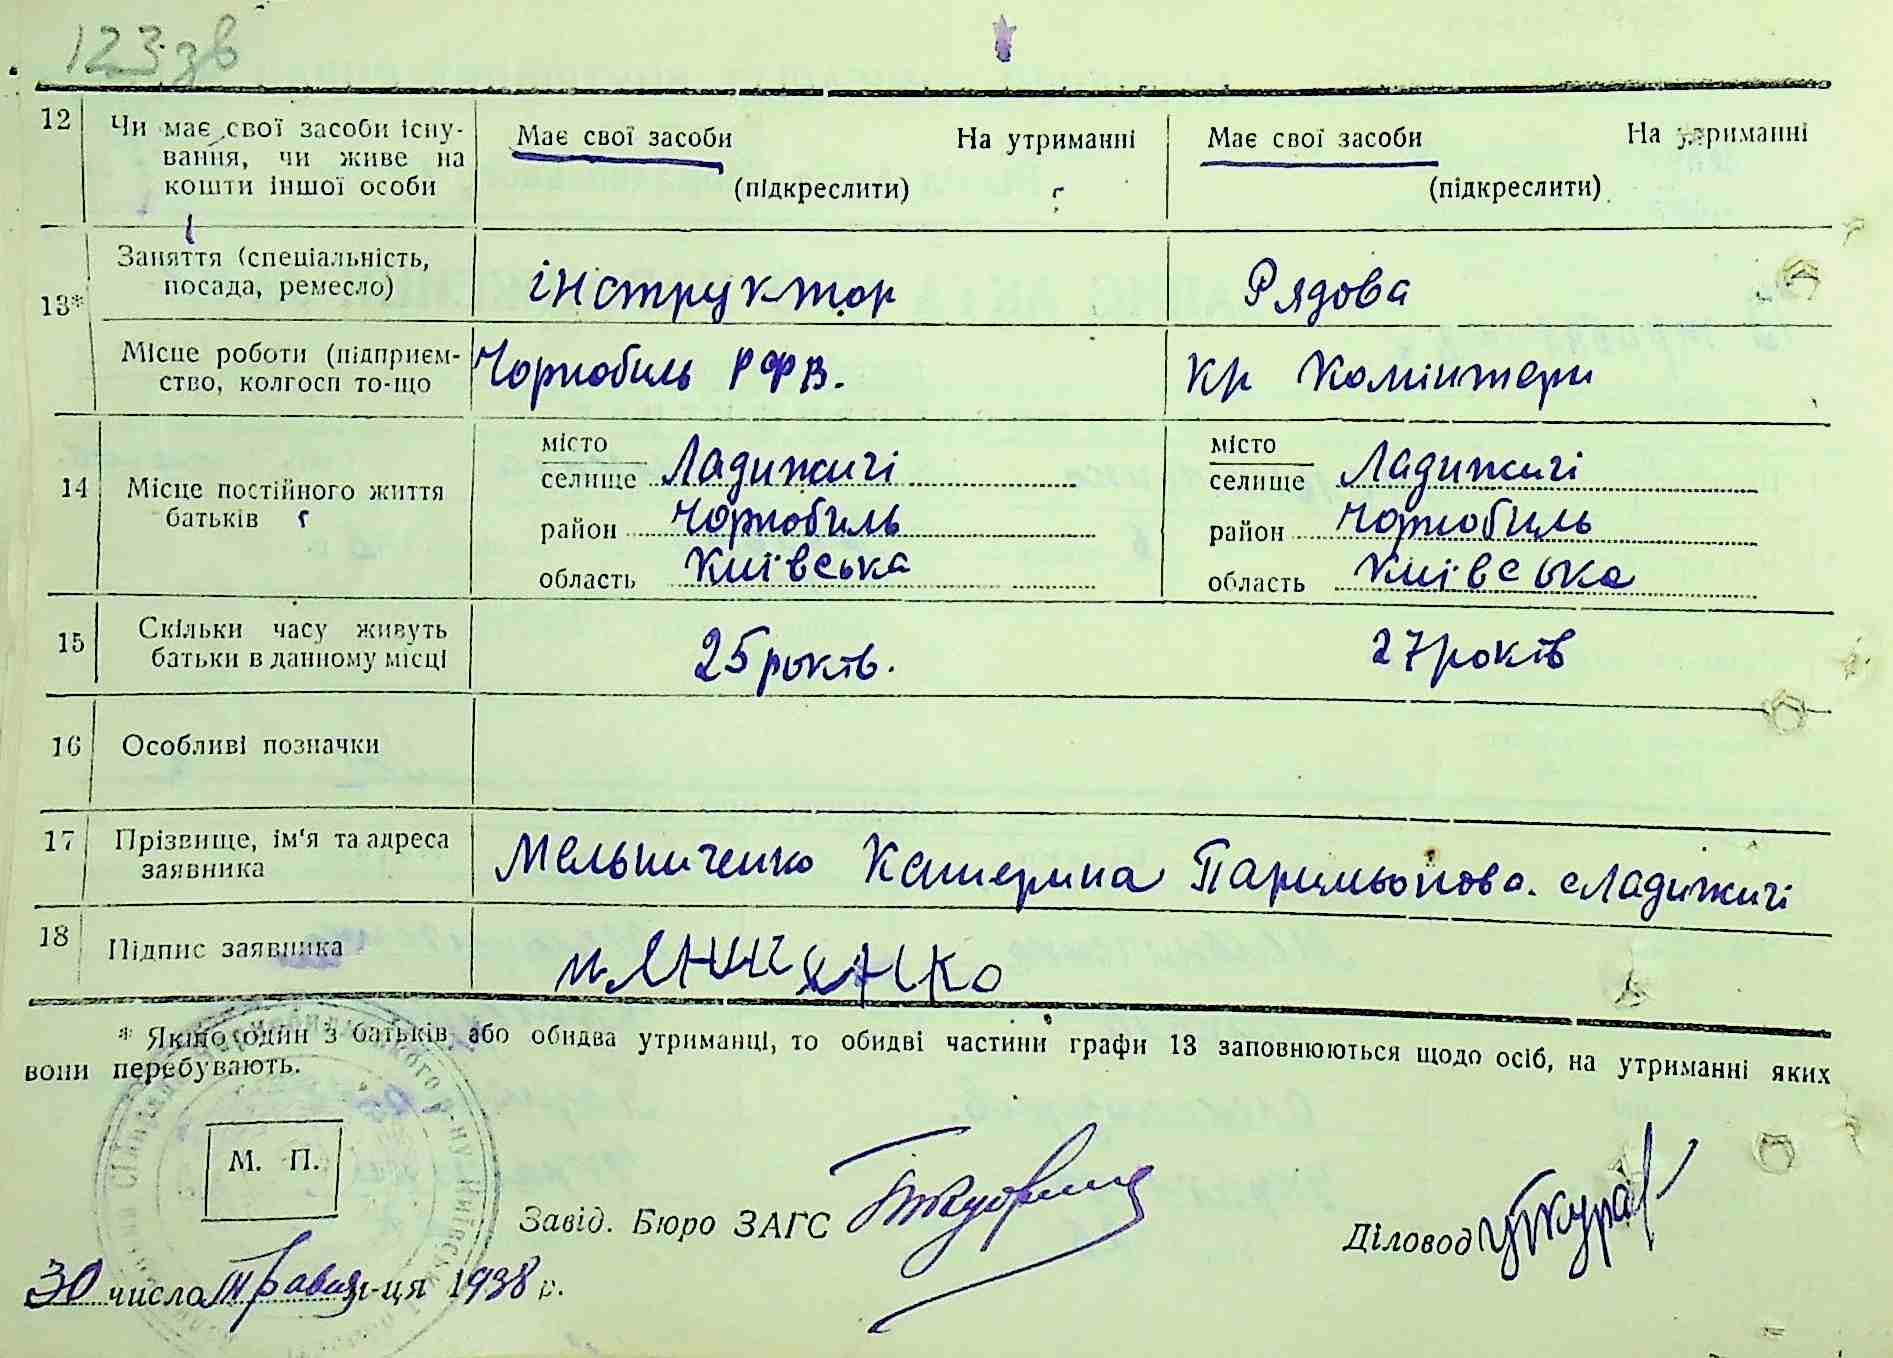 123 зв
12 Чи має свої засоби існу-
вання, чи живе на
кошти іншої особи
Має свої засоби На утриманні
(підкреслити)
Має свої засоби На утриманні
(підкреслити)
13* Заняття (спеціальність,
посада, ремесло)
інструктор
Рядова
Місце роботи (підприєм-
ство, колгосп то-що
Чорнобиль РФВ.
Комінтерн
14 Місце постійного життя
батьків
місто
селище Ладижичі
район Чорнобиль
область Київська
місто
селище Ладижичі
район Чорнобиль
область Київська
15 Скільки часу живуть
батьки в данному місці
25 років.
27 років
16 Особливі позначки
17 Прізвище, ім'я та адреса
заявника
Мельниченко Катерина с Ладижичі
18 Підпис заявника
* Якщо один з батьків або обидва утриманці, то обидві частини графи 13 заповнюються щодо осіб, на утриманні яких
вони перебувають.
М. П.
Завід. Бюро ЗАГС
Діловод
30 числа Травня м-ця 1938 р.